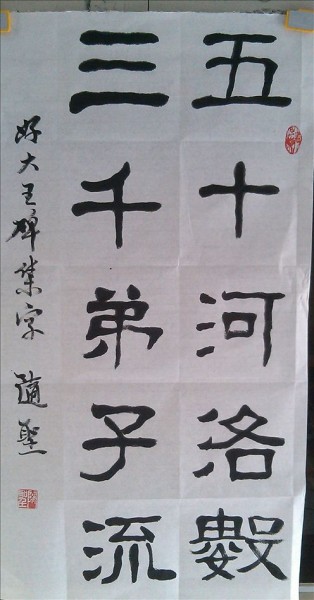 五十河洛數
三千弟子流
好大王碑集字 適聖